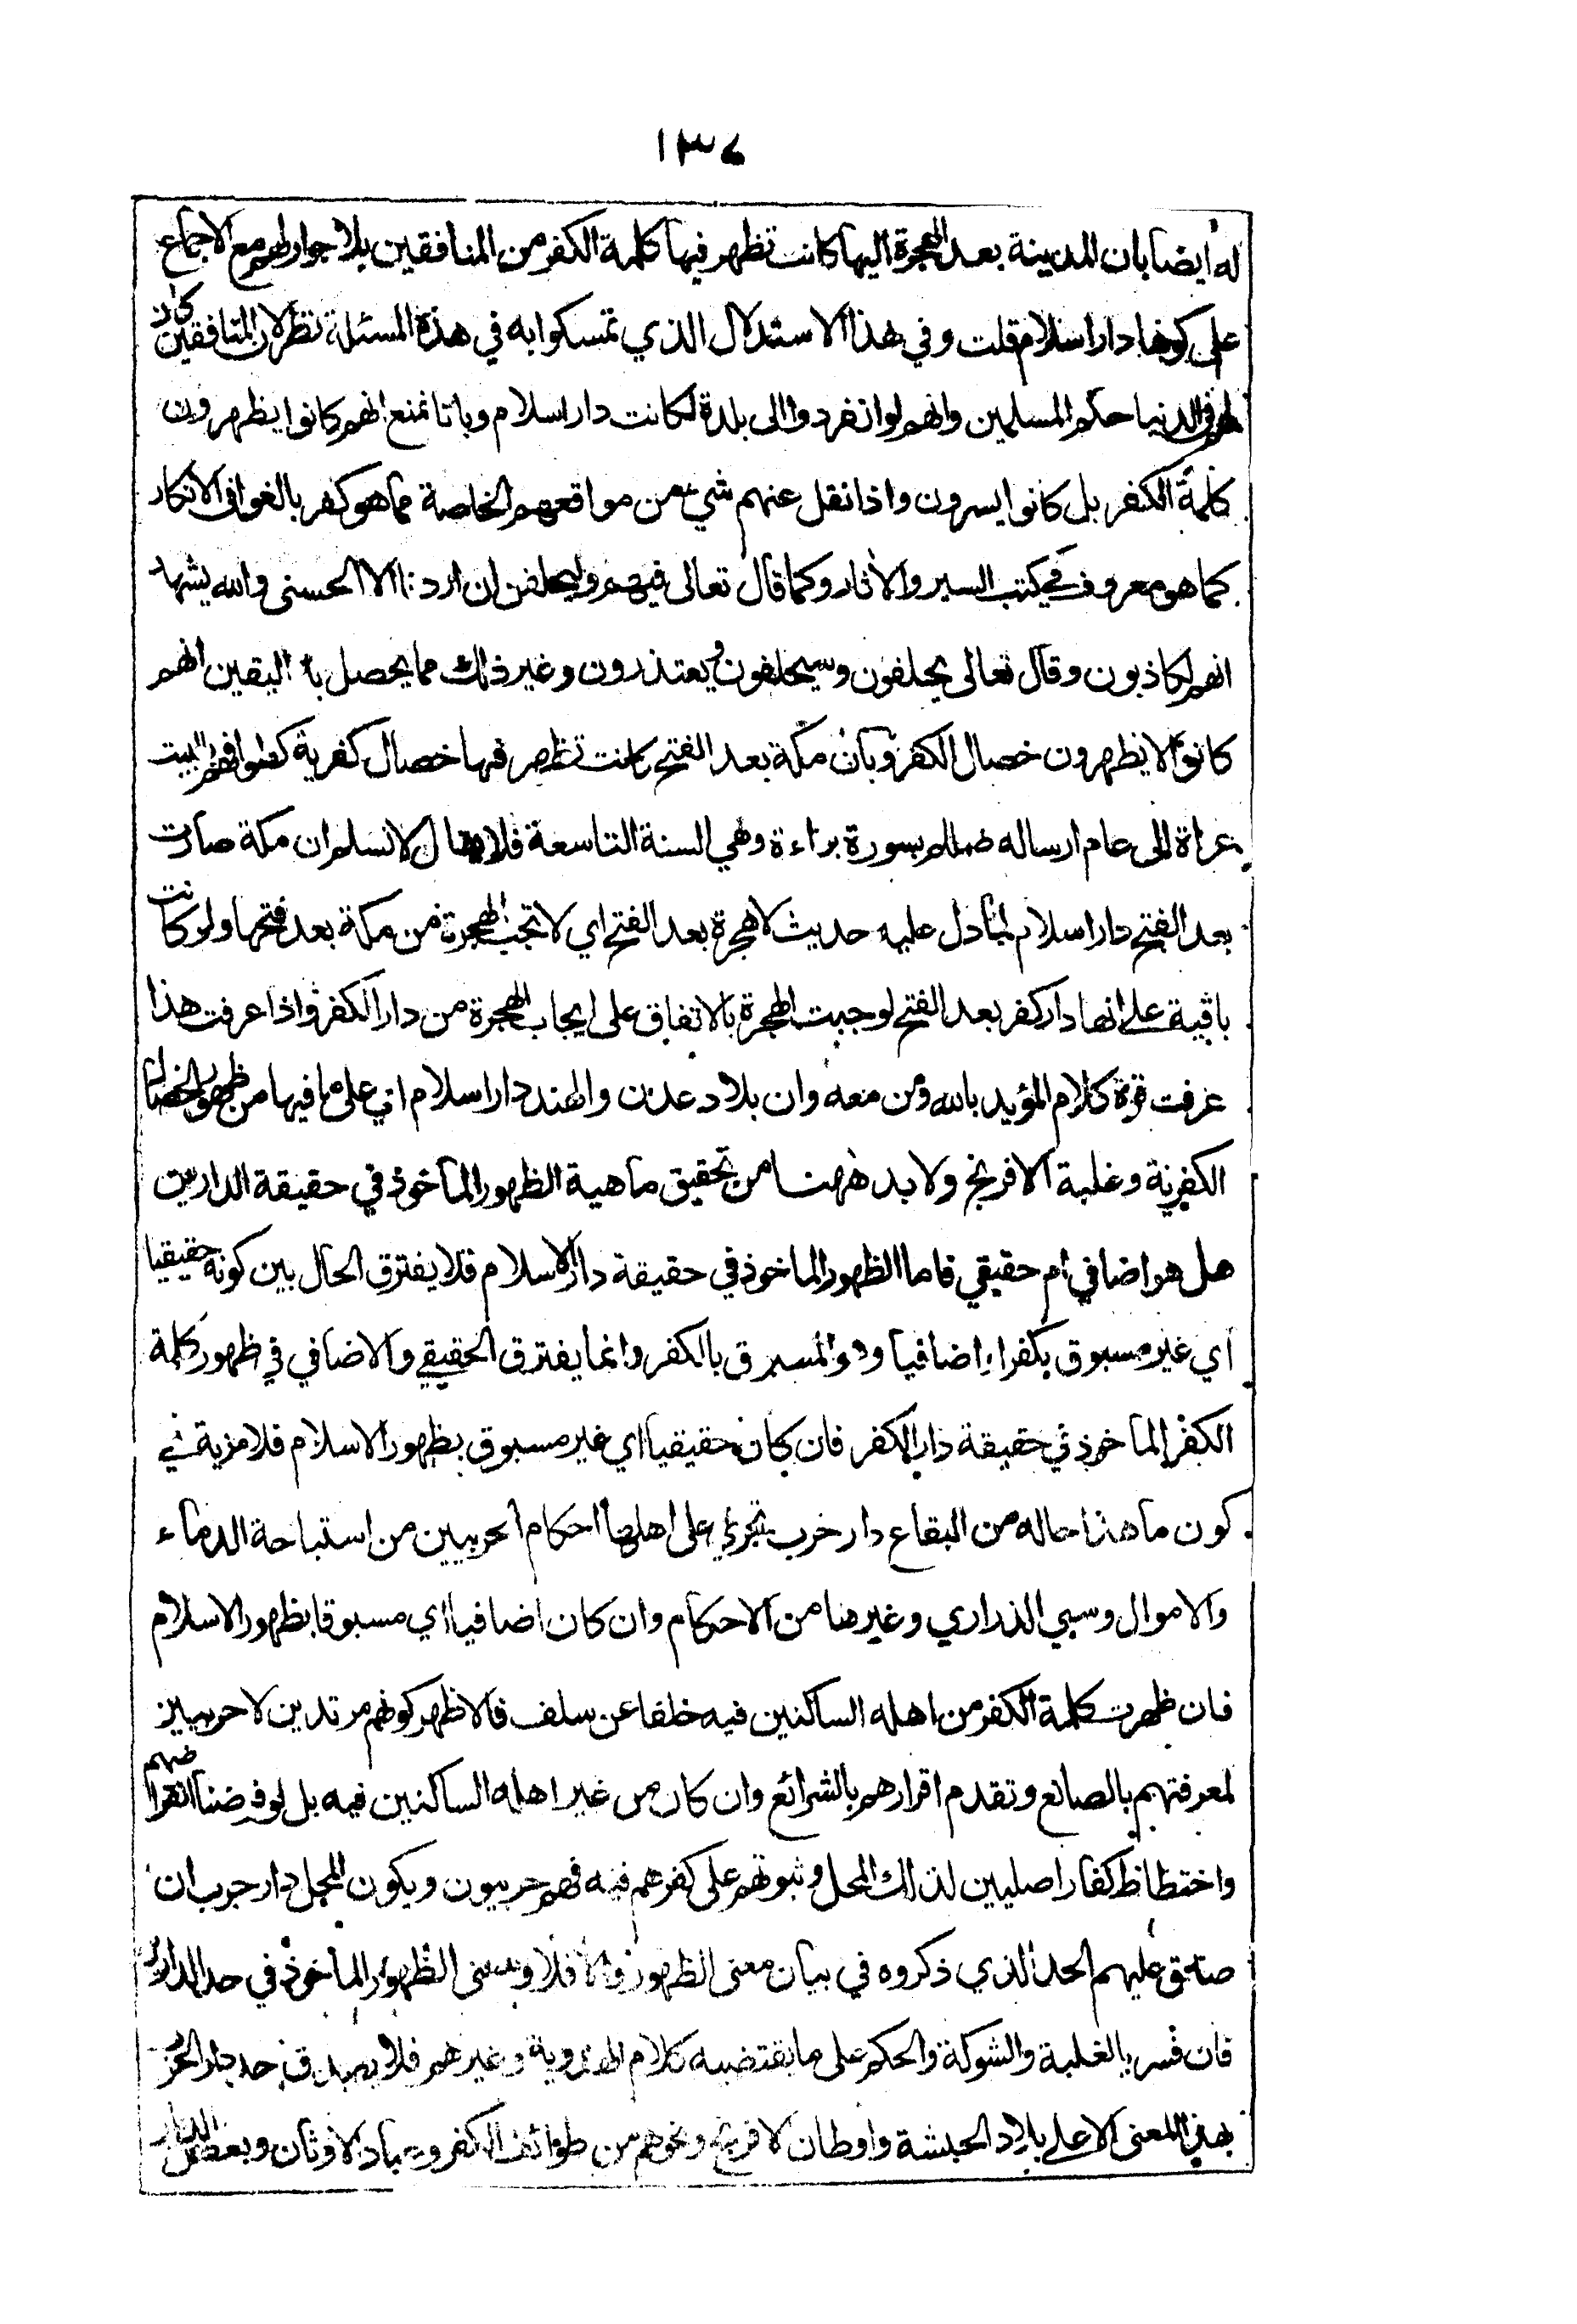 ١٣٤
له ايضا بان المدينة بعد الهجرة اليها كانت تظهر فيها كلمة الكفر من المنافقين بلا جوار لهم مع الاجماع
على كونها دار اسلام قلت وفي هذا الاستدلال الذي تمسكوا به في هذه المسئلة نظر لان المنافقين كان
لهم في الدنيا حكم المسلمين وانهم لو انفردوا الى بلدة لكانت دار اسلام وبانا نمنع انهم كانوا يظهرون
كلمة الكفر بل كانوا يسرون واذا نقل عنهم شيء من مواقعهم الخاصة مما هو كفر بالغوا في الانكار
كما هو معروف في كتب السير والاثار وكما قال تعالى فيهم وليحلفن ان اردنا الا الحسنى والله يشهد
انهم لكاذبون وقال تعالى يحلفون وسيحلفون ويعتذرون وغير ذلك مما يحصل به اليقين انهم
كانوا لا يظهرون خصال الكفر وبان مكة بعد الفتح كانت تظهر فيها خصال كفرية كطوافهم بالبيت
عراة الى عام ارساله صللم بسورة براءة وهي السنة التاسعة فلا يقال لا نسلم ان مكة صارت
بعد الفتح دار اسلام لما دل عليه حديث لا هجرة بعد الفتح اي لا تجب الهجرة من مكة بعد فتحها ولو كانت
باقية على انها دار كفر بعد الفتح لوجبت الهجرة بالاتفاق على ايجاب الهجرة من دار الكفر واذا عرفت هذا
عرفت قوة كلام المؤيد بالله ومن معه وان بلاد عدن والهند دار اسلام اي على ما فيها من ظهور الخصال
الكفرية وغلبة الافرنج ولا بد ههنا من تحقيق ماهية الظهور الماخوذ في حقيقة الدارين
هل هو اضافي ام حقيقي فاما الظهور الماخوذ في حقيقة دار الاسلام فلا يفترق الحال بين كونه حقيقيا
اي غير مسبوق بكفر او اضافيا وهو المسبوق بالكفر وانما يفترق الحقيقي والاضافي في ظهور كلمة
الكفر الماخوذ في حقيقة دار الكفر فان كان حقيقيا اي غير مسبوق بظهور الاسلام فلا مزية في
كون ما هذا حاله من البقاع دار حرب تجري على اهلها احكام الحربيين من استباحة الدماء
والاموال وسبي الذراري وغيرها من الاحكام وان كان اضافيا اي مسبوقا بظهور الاسلام
فان ظهرت كلمة الكفر من اهله الساكنين فيه خلفا عن سلف فالاظهر كونهم مرتدين لا حربيين
لمعرفتهم بالصانع وتقدم اقرارهم بالشرائع وان كان من غير اهله الساكنين فيه بل لو فرضنا انقراضهم
واختطاط كفار اصليين لذلك المحل وثبوتهم على كفرهم فيه فهم حربيون ويكون المحل دار حرب ان
صدق عليهم الحد الذي ذكروه في بيان معنى الظهور والا فلا ومعنى الظهور الماخوذ في حد الدارين
فان فسر بالغلبة والشوكة والحكم على ما يقتضيه كلام الهدوية وغيرهم فلا يصدق حد دار الحرب
بهذا المعنى الا على بلاد الحبشة واوطان الافرنج ونحوهم من طوائف الكفر وعباد الاوثان وبعض الديار